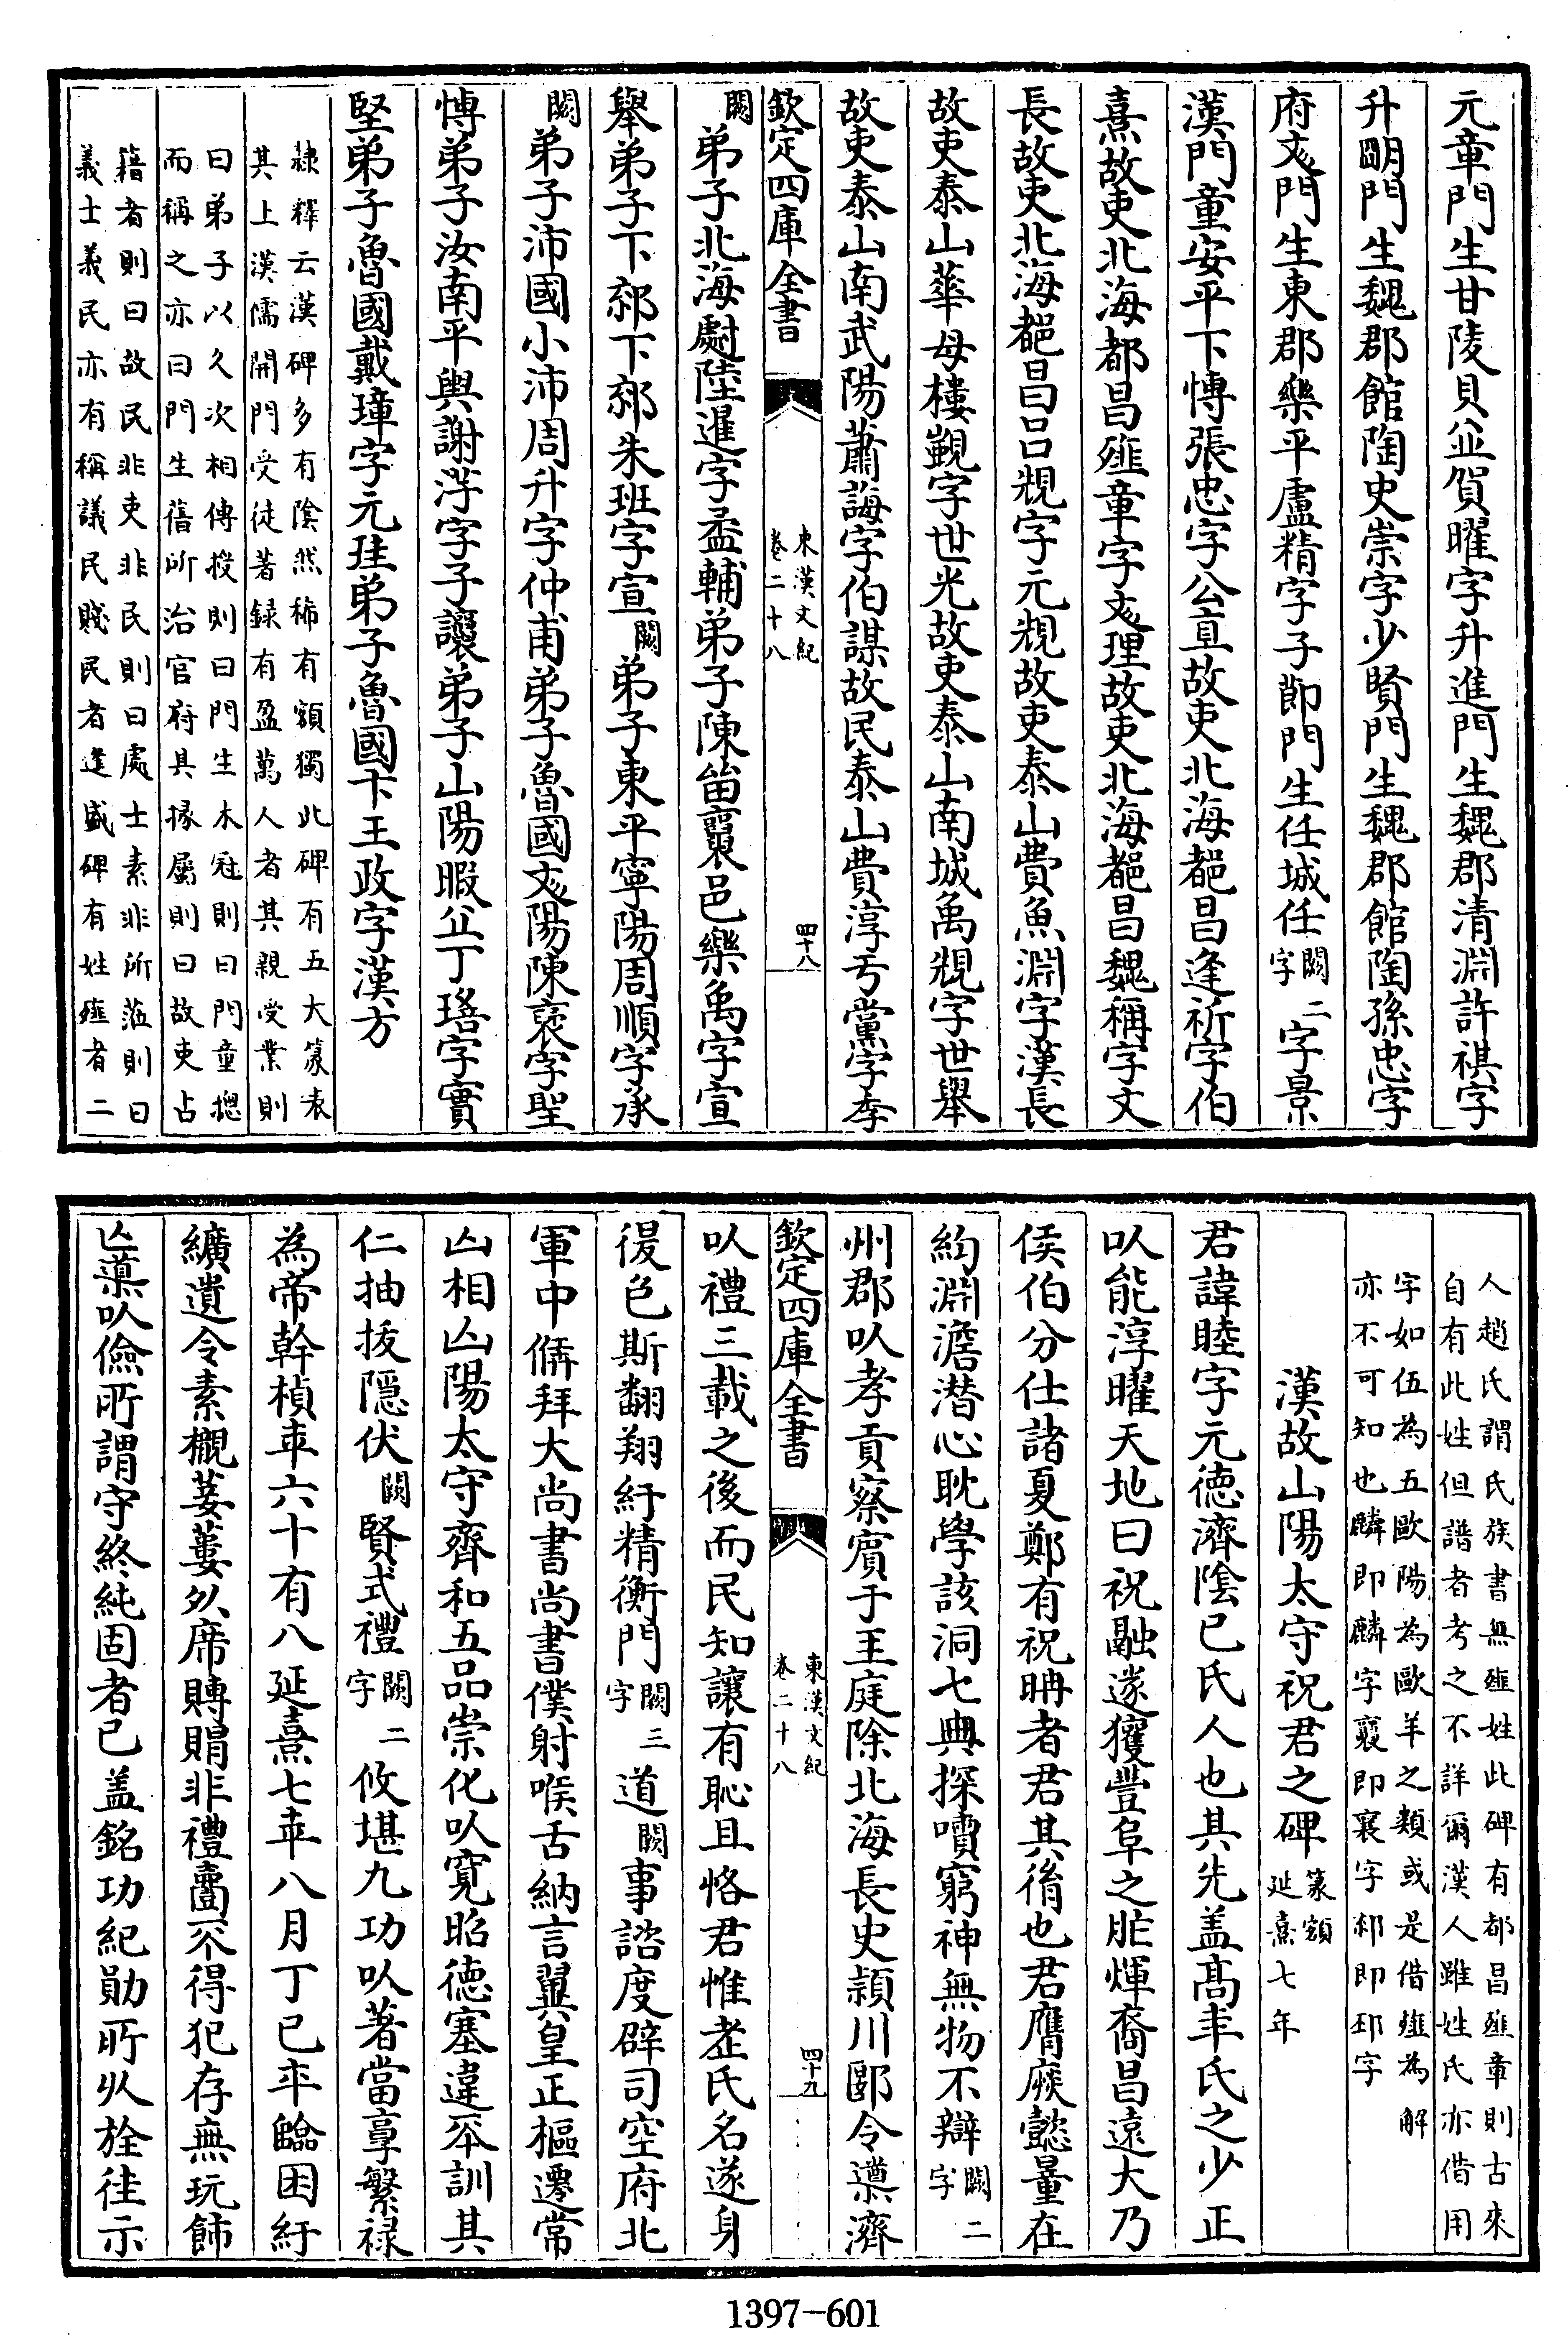 元章門生甘陵貝丘賀曜字升進門生魏郡清淵許祺字
升朙門生魏郡館陶史崇字少賢門生魏郡館陶孫忠字
府㕛門生東郡樂平盧精字子節門生任城任闕二字字景
漢門童安平下愽張忠字公直故吏北海都昌逢祈字伯
熹故吏北海都昌𨿅章字㕛理故吏北海都昌魏稱字文
長故吏北海都昌呂規字元規故吏泰山費魚淵字漢長
故吏泰山華毋樓覬字世光故吏泰山南城禹規字世舉
故吏泰山南武陽蕭誨字伯謀故民泰山費淳于黨字季
欽定四庫全書 東漢文紀 卷二十八 四十八
闕弟子北海劇陸暹字孟輔弟子陳留襄邑樂禹字宣
舉弟子下邳下邳朱班字宣闕弟子東平寧陽周順字承
闕弟子沛國小沛周升字仲甫弟子魯國㕛陽陳裦字聖
愽弟子汝南平輿謝洋字子讓弟子山陽瑕丘丁瑤字實
堅弟子魯國戴璋字元珪弟子魯國卞王政字漢方
隸釋云漢碑多有陰然稀有額獨此碑有五大篆表
其上漢儒開門受徒著録有盈萬人者其親受業則
曰弟子以久次相傳授則曰門生未冠則曰門童總
而稱之亦曰門生舊所治官府其掾屬則曰故吏占
籍者則曰故民非吏非民則曰處士素非所蒞則曰
義士義民亦有稱議民賤民者逢盛碑有姓𨿅者二
人趙氏謂氏族書無𨿅姓此碑有都昌𨿅章則古來
自有此姓但譜者考之不詳爾漢人雖姓氏亦借用
字如伍為五歐陽為歐羊之類或是借𨿅為解
亦不可知也驎即麟字襃即襄字䢼即邳字
漢故山陽太守祝君之碑篆額延熹七年
君諱睦字元德濟陰已氏人也其先盖高辛氏之少正
㠯能淳曜天地曰祝融遂獲豐阜之胙煇裔昌遠大乃
侯伯分仕諸夏鄭有祝聃者君其後也君膺厥懿量在
約淵澹潜心眈學該洞七典探嘖窮神無物不辯闕二字
州郡㠯孝貢察賔于王庭除北海長史潁川郾令遵濟
欽定四庫全書 東漢文紀 卷二十八 四十九
㠯禮三載之後而民知讓有恥且恪君惟老氏名遂身
復色斯翻翔紆精衡門闕三字道闕事諮度辟司空府北
軍中候拜大尚書尚書僕射喉舌納言翼皇正樞遷常
山相山陽太守齊和五品崇化㠯寛昭德塞違不訓其
仁抽拔隱伏闕賢式禮闕二字攸堪九功㠯著當享繁禄
為帝幹楨年六十有八延熹七年八月丁巳卒臨困紆
纊遺令素櫬蔞蔞㠯席賻賵非禮啬不得犯存無玩飾
亡遵㠯儉所謂守終純固者已盖銘功紀勛所㠯旌往示
1397-601